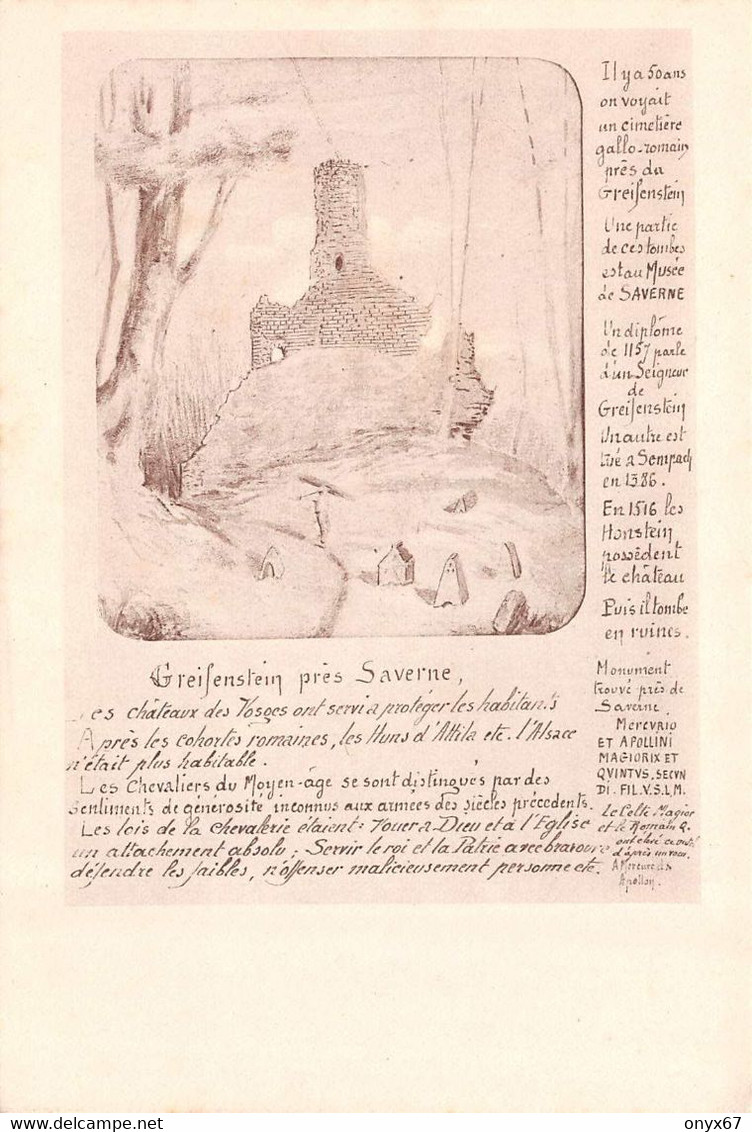 Il y a 50 ans
on voyait
un cimetière
gallo-romain
près du
Greifenstein
Une partie
de ces tombes
est au Musée
de SAVERNE
Un diplôme
de 1157 parle
d'un Seigneur
de
Greifenstein
Un autre est
tué a Sempach
en 1386.
En 1516 les
Honstein
possèdent
le château
Puis il tombe
en ruines.
Monument
trouvé près de
Saverne
MERCVRIO
ET APOLLINI
MAGIORIX ET
QVINTVS. SECVN
DI. FIL. V. S. L. M.
Le Celte Magior
et le Romain Q.
ont élevé
d'après un vœu.
A Mercure &
Apollon.
Greifenstein près Saverne,
Les châteaux des Vosges ont servi a protéger les habitants
Après les cohortes romaines, les Huns d'Attila etc. l'Alsace
n'était plus habitable.
Les Chevaliers du Moyen-âge se sont distingués par des
sentiments de générosité inconnus aux armées des siècles précedents.
Les lois de la chevalerie étaient: Vouer a Dieu et à l'Eglise
un attachement absolu; Servir le roi et la Patrie avec bravoure
défendre les faibles, n'offenser malicieusement personne etc.
delcampe.net
onyx67